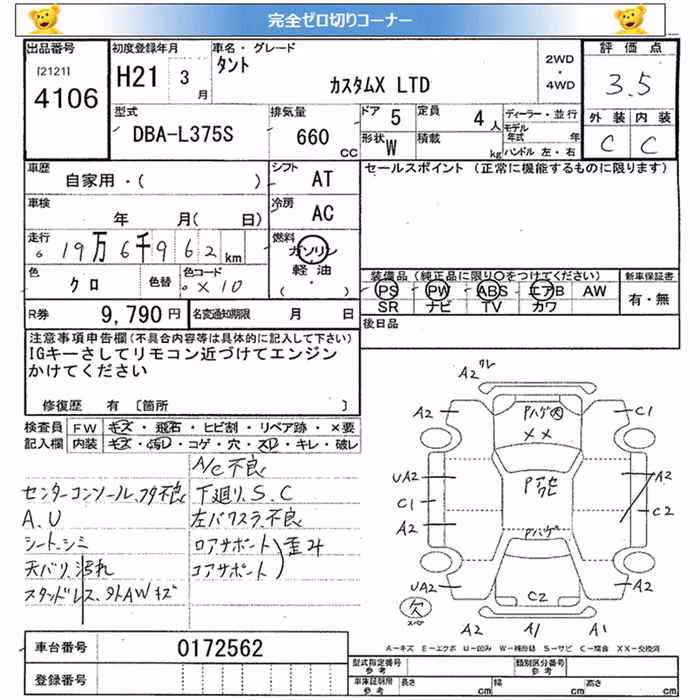 完全ゼロ切りコーナー
出品番号
[2121]
4106
初度登録年月
H21 3月
車名・グレード
タント
カスタムX LTD
2WD
・
4WD
評価点
3.5
外装 内装
C C
型式
DBA-L375S
排気量
660 CC
ドア 5
定員 4人
形状 W
積載 kg
ディーラー・並行
モデル年式 年
ハンドル 左・右
車歴
自家用・( )
シフト
AT
車検
年 月( 日)
冷房
AC
走行
19万6千962 km
燃料
ガソリン
軽油
( ・ )
色
クロ
色替
色コード
X10
セールスポイント (正常に機能するものに限ります)
装備品 (純正品に限り○をつけてください)
PS PW ABS エアB AW
SR ナビ TV カワ
新車保証書
有・無
R券 9,790円
名変通知期限 月 日
後日品
注意事項申告欄(不具合内容等は具体的に記入して下さい)
IGキーさしてリモコン近づけてエンジン
かけてください
修復歴 有 [箇所 ]
検査員 FW キズ・飛石・ヒビ割・リペア跡・×要
記入欄 内装 キズ・汚レ・コゲ・穴・スレ・キレ・破レ
A/C不良
センターコンソール、フタ不良
下廻り、S.C
A.U
左パワスラ不良
シート、シミ
ロアサポート
コアサポート
歪み
天バリ、汚れ
スタッドレス、外AWキズ
A2 ワレ
A2
C1
Pハゲ大
XX
UA2
A2
C1
C2
A2
Pハゲ
UA2
A2
C2
欠
A2 A1 A1
A－キズ E－エクボ U－凹み W－補修跡 S－サビ C－腐食 XX－交換済
車台番号 0172562
登録番号
型式指定番号 参考
類別区分番号 参考
車庫証明用 参考
長さ cm 幅 cm 高さ cm